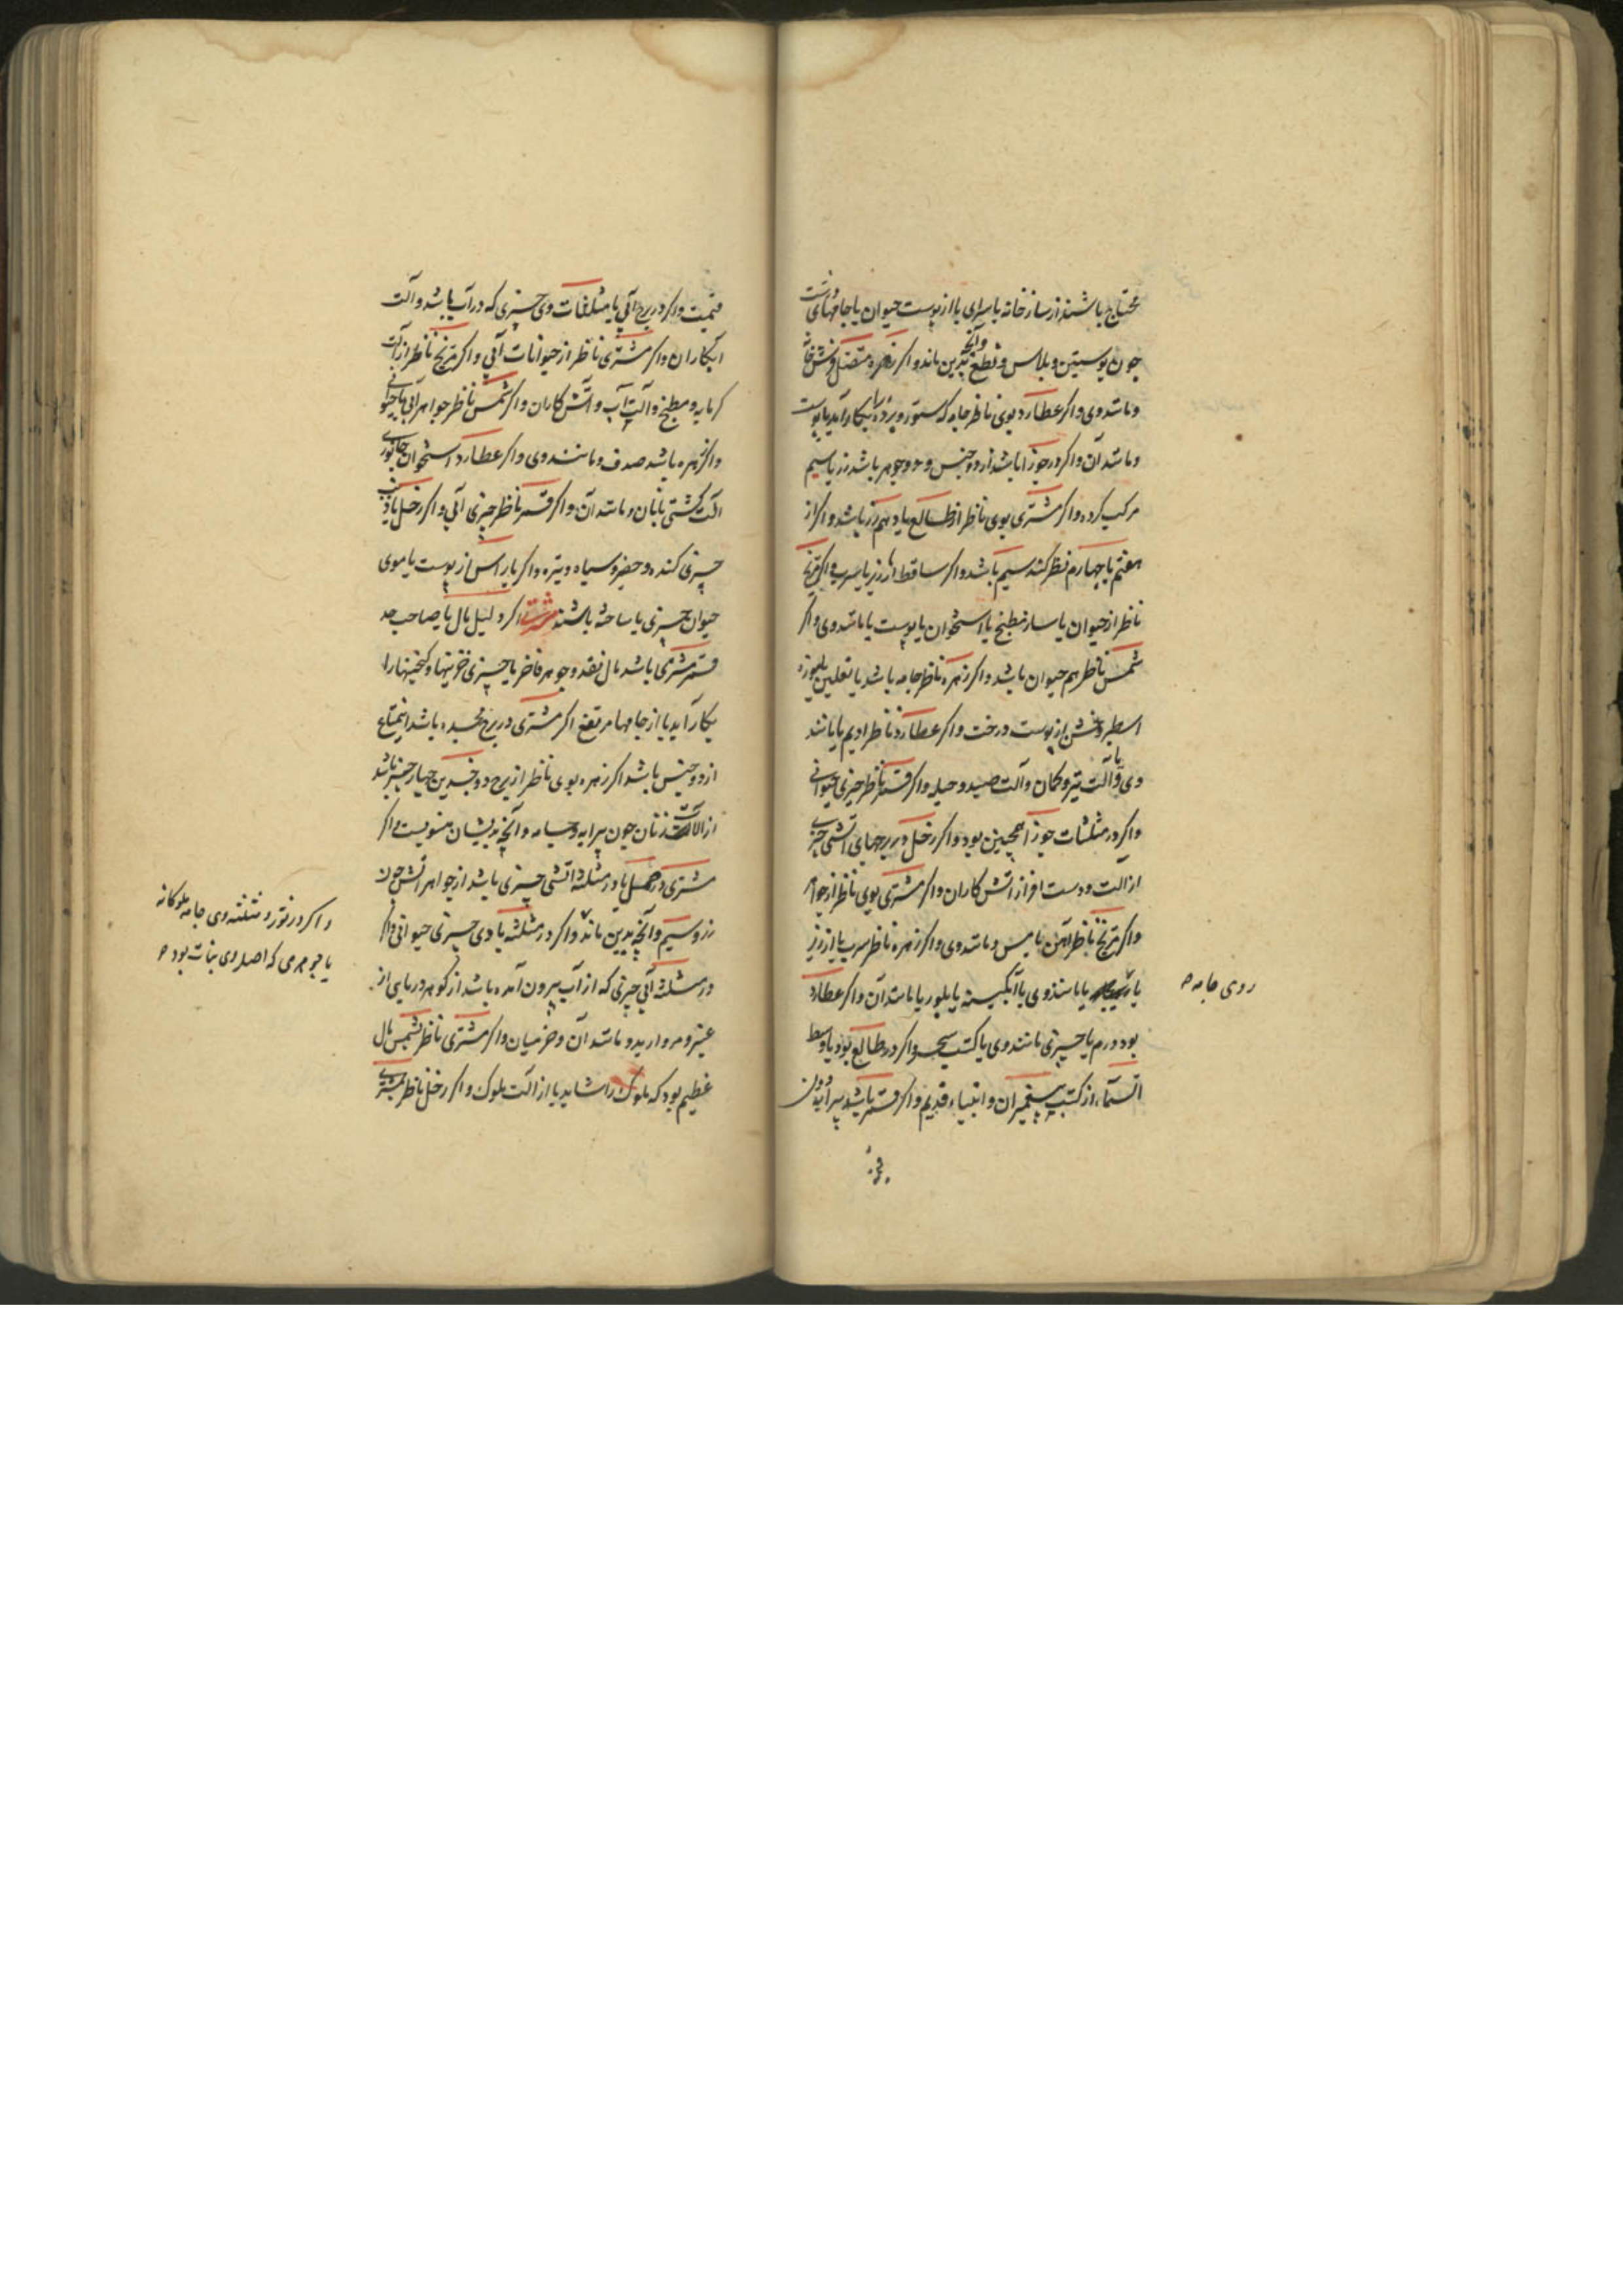 محتاج باشند از ساز خانه یا سرای یا از پوست حیوان یا جامهای
چون پوستین و پلاس و نطع و آنچه بدین ماند و اکر زهره متصل فرش خانه
و مانند وی و اکر عطارد بوی ناظر جامه که ستور و پرده را بکار آید یا پوست
و مانند آن و اکر در جوزا باشد از دو جنس و دو جوهر باشد زر یا سیم
مرکب کرده و اکر مشتری بوی ناظر از طالع یا دهم زر باشد و اکر از
هفتم یا چهارم نظر کند سیم باشد و اکر ساقط ارزیز یا سرب و اکر مریخ
ناظر از حیوان یا ساز مطبخ یا استخوان یا پوست یا مانند وی و اکر
شمس ناظر هم حیوان باشد و اکر زهره ناظر جامه باشد یا نعلین یا موزه
از پوست درخت و اکر عطارد ناظر ادیم یا مانند
وی یا آلت تیر و کمان و آلت صید و حیله و اکر قمر ناظر چیزی حیوانی
و اکر در مثلثات جوزا همچنین بود و اکر زحل در برجهای آتشی چیزی
از آلت و دست افزار آتش کاران و اکر مشتری بوی ناظر از جواهر
و اکر مریخ ناظر آهن یا مس و مانند وی و اکر زهره ناظر سرب یا ارزیز
یا مانند وی یا آبکینه یا بلور یا مانند آن و اکر عطارد
بود درم یا چیزی مانند وی یا کتب سحر و اکر در طالع بود یا وسط
السماء از کتب پیغمبران و انبیاء قدیم و اکر قمر باشد
روی جامه
قیمت و اکر در برج آبی یا مثلثات وی چیزی که در آب باشد و آلت
آبکاران و اکر مشتری ناظر از حیوانات آبی و اکر مریخ ناظر از آلت
کرمابه و مطبخ و آلت آب و آتش کاران و اکر شمس ناظر جواهر آبی یا حیوانی
و اکر زهره باشد صدف و مانند وی و اکر عطارد استخوان جانوری
آلت کشتی بانان و مانند آن و اکر قمر ناظر چیزی آبی و اکر زحل با ذنب
چیزی کنده و حقیر و سیاه و تیره و اکر با راس از پوست یا موی
حیوان چیزی یا ساخته باشند مشتری اکر دلیل مال یا صاحب حد
قمر مشتری باشد مال نقد و جوهر فاخر یا چیزی خزینها و کنجینها را
بکار آید یا از جامها مرتفع اکر مشتری در برج مجسده باشد این متاع
از دو جنس باشد اکر زهره بوی ناظر از برج دو جسدین چهار جنس باشد
از آلات زنان چون پیرایه و جامه و آنچه بدیشان منسوبست و اکر
مشتری در حمل یا در مثلثه آتشی چیزی باشد از جواهر آتش چون
زر و سیم و آنچه بدین ماند و اکر در مثلثه بادی چیزی حیوانی و اکر
در مثلثه آبی چیزی که از آب بیرون آمده باشد از کوهر دریایی از
عنبر و مروارید و مانند آن و اکر مشتری ناظر شمس مال
عظیم بود که ملوک را شاید یا از آلت ملوک و اکر زحل ناظر مشتری
و اکر در ثور و مثلثه وی جامه ملوکانه
یا جوهری که اصل وی نبات بود